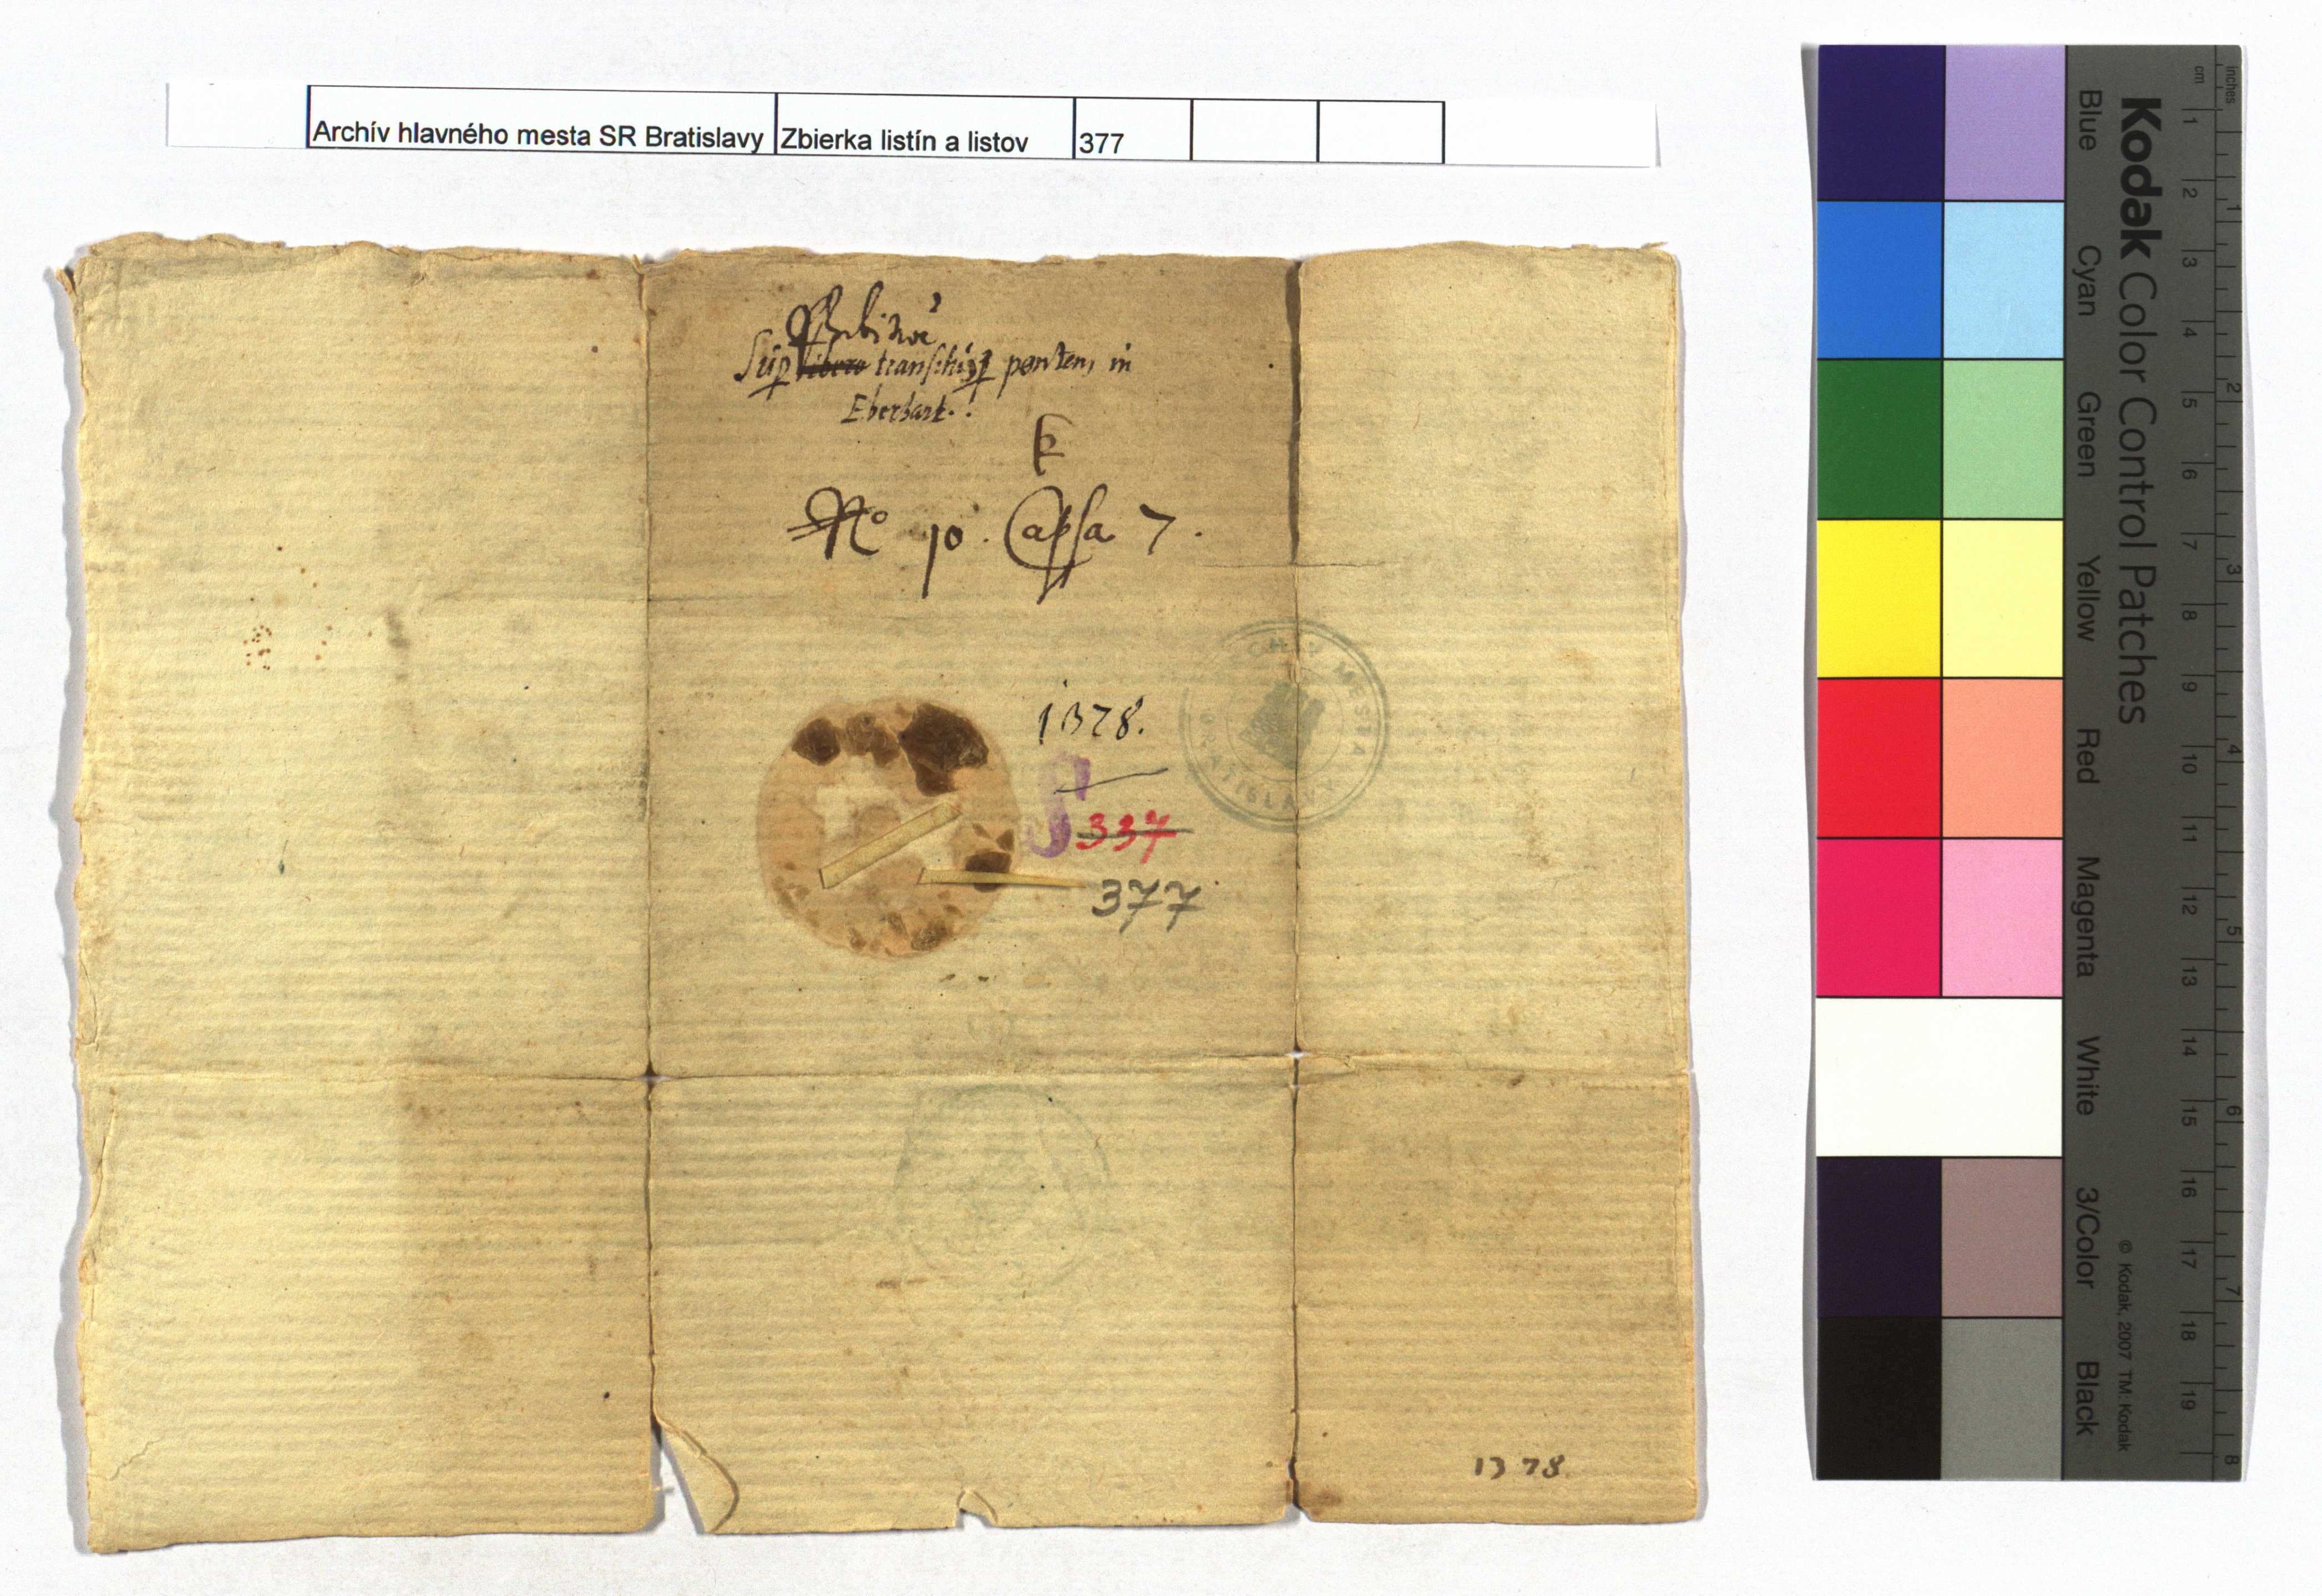 Archív hlavného mesta SR Bratislavy Zbierka listín a listov 377
Sup transitu pontem in
Eberhart.
k
No 10. Capsa 7.
1378.
S
337
377
ARCHÍV MESTA BRATISLAVY
1378
Kodak Color Control Patches
© Kodak, 2007 TM: Kodak
Blue Cyan Green Yellow Red Magenta White 3/Color Black
cm 1 2 3 4 5 6 7 8 9 10 11 12 13 14 15 16 17 18 19
inches 1 2 3 4 5 6 7 8